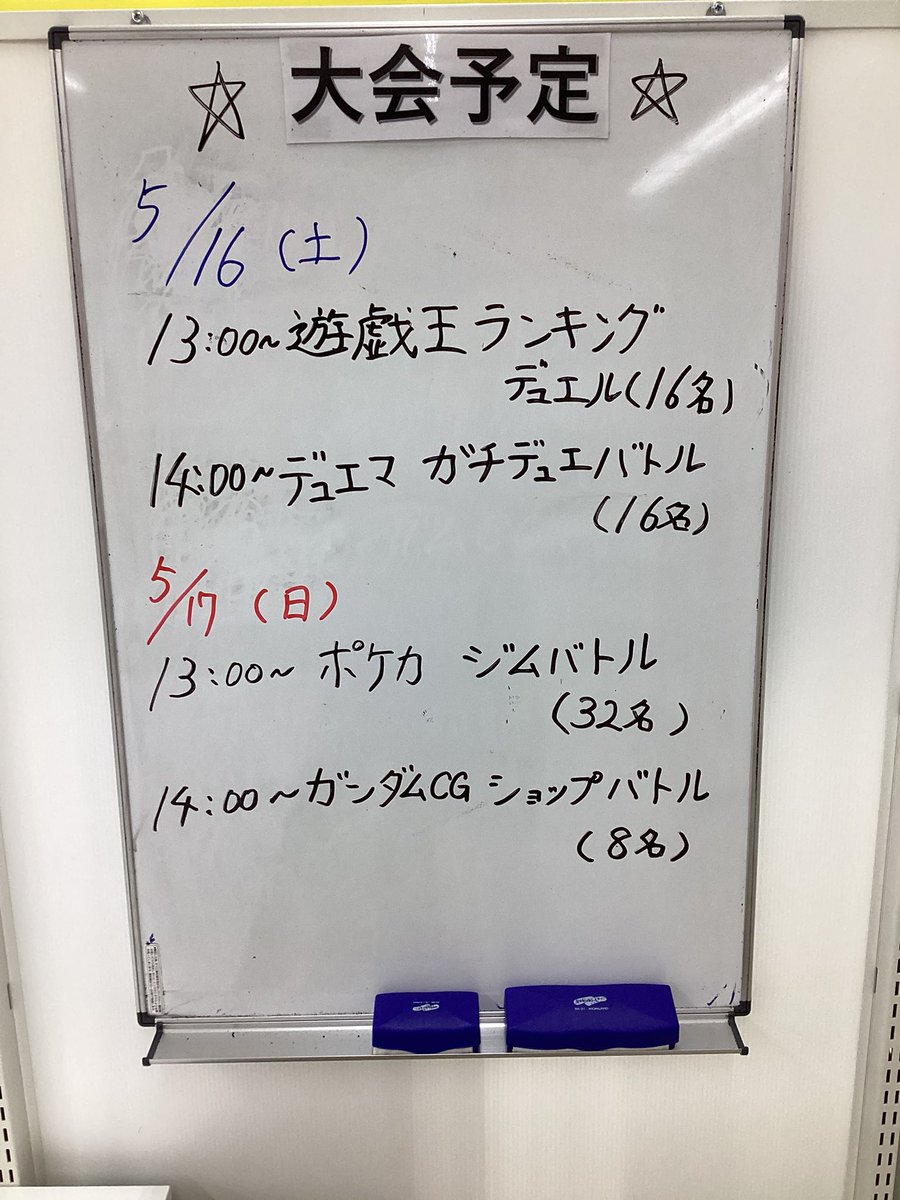 ☆ 大会予定 ☆
5/16（土）
13:00~遊戯王ランキング
デュエル(16名)
14:00~デュエマ ガチデュエバトル
(16名)
5/17（日）
13:00~ ポケカ ジムバトル
(32名)
14:00~ガンダムCG ショップバトル
(8名)